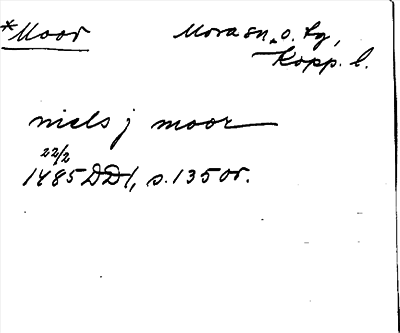 *Moor
Mora sn. o. tg,
Kopp. l.
niels j moor
22/2
1485 DD1, s. 135 or.